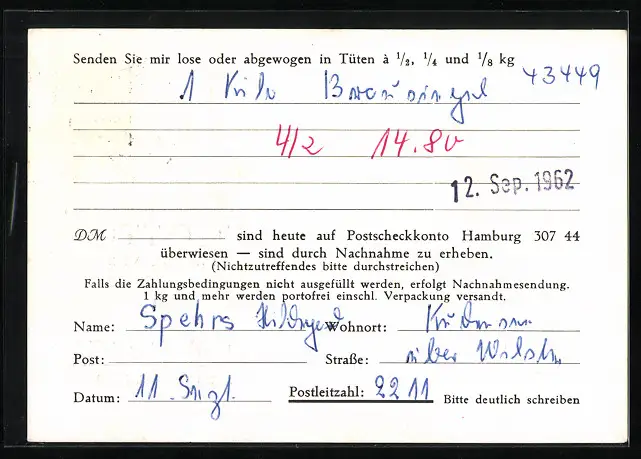 Senden Sie mir lose oder abgewogen in Tüten à 1/2, 1/4 und 1/8 kg 43449
1 Kilo
4/2 14.80
12. Sep. 1962
DM sind heute auf Postscheckkonto Hamburg 307 44
überwiesen — sind durch Nachnahme zu erheben.
(Nichtzutreffendes bitte durchstreichen)
Falls die Zahlungsbedingungen nicht ausgefüllt werden, erfolgt Nachnahmesendung.
1 kg und mehr werden portofrei einschl. Verpackung versandt.
Name: Spehrs Hildegard Wohnort:
Post: Straße: über Wilster
Datum: 11. Sept. Postleitzahl: 2211 Bitte deutlich schreiben